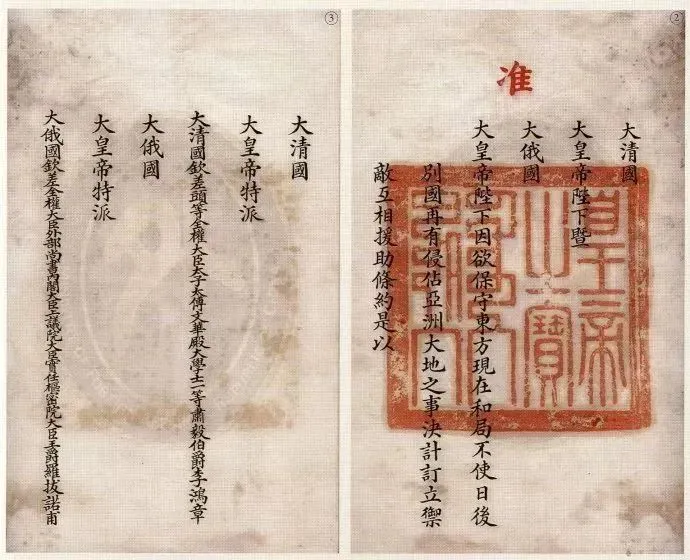 ②
准
大清國
大皇帝陛下暨
大俄國
大皇帝陛下因欲保守東方現在和局不使日後
別國再有侵佔亞洲大地之事決計訂立禦
敵互相援助條約是以
皇帝
之寶
③
大清國
大皇帝特派
大清國欽差頭等全權大臣太子太傅文華殿大學士一等肅毅伯爵李鴻章
大俄國
大皇帝特派
大俄國欽差全權大臣外部尚書內閣大臣上議院大臣實任樞密院大臣王爵羅拔諾甫